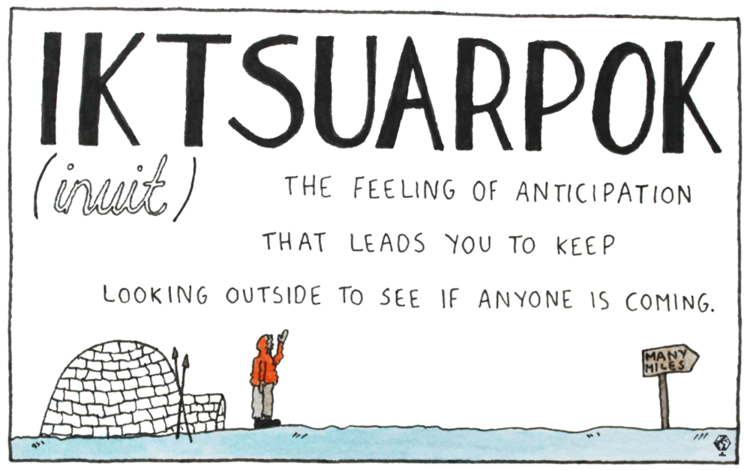 IKTSUARPOK
(inuit)
THE FEELING OF ANTICIPATION
THAT LEADS YOU TO KEEP
LOOKING OUTSIDE TO SEE IF ANYONE IS COMING.
MANY
MILES